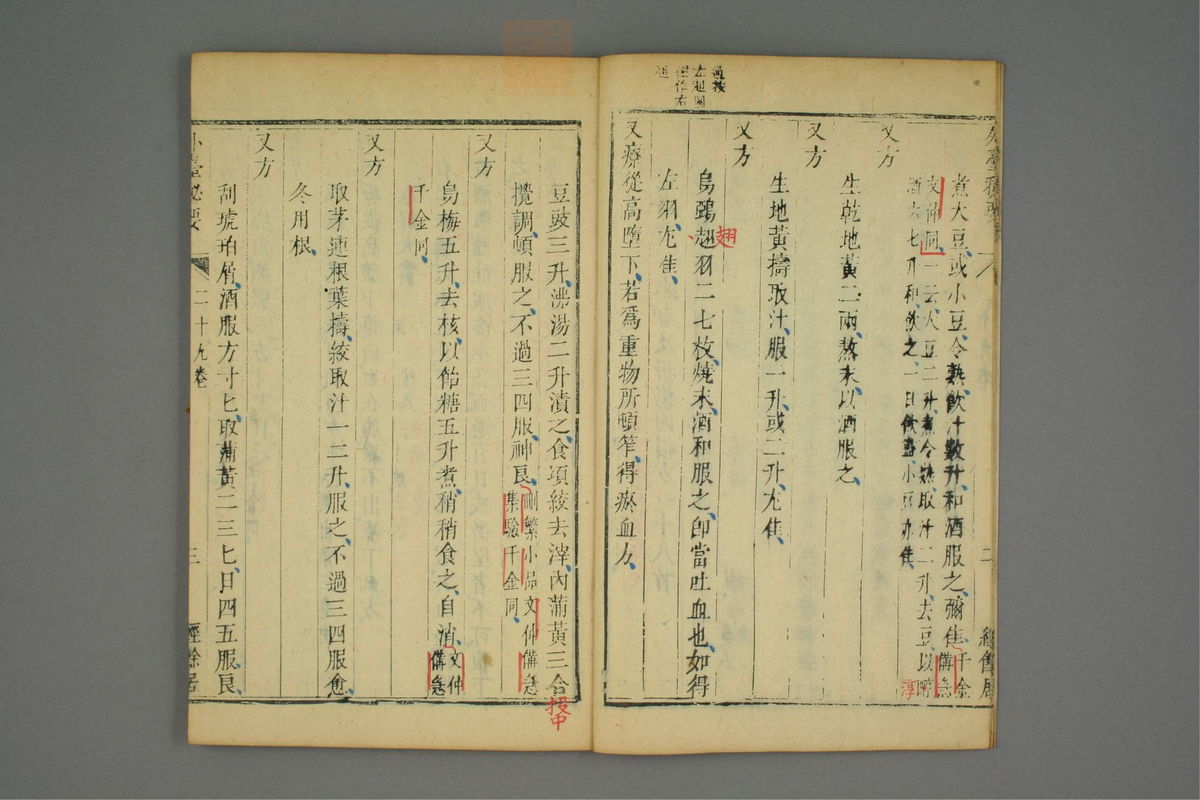 外臺秘要
二
經餘居
煮大豆或小豆令熟飲汁數升和酒服之彌佳千金備急
文仲同一云大豆二升煮令熟取汁二升去豆以醇
酒六七升和飲之一日飲盡小豆亦佳
淳
又方
生乾地黃二兩熬末以酒服之
又方
生地黃擣取汁服一升或二升尤佳
又方
烏鷄翅羽二七枚燒末酒和服之即當吐血也如得
翅
左羽尤佳
又療從高墮下若爲重物所頓笮得瘀血方
豆豉三升沸湯二升漬之食頃絞去滓內蒲黃三合
投中
攪調頓服之不過三四服神良刪繁小品文仲備急
集驗千金同
又方
烏梅五升去核以飴糖五升煮稍稍食之自消文仲備急
千金同
又方
取茅連根葉擣絞取汁一二升服之不過三四服愈
冬用根
又方
刮琥珀屑酒服方寸匕取蒲黃二三匕日四五服良
外臺秘要
二十九卷
三
經餘居